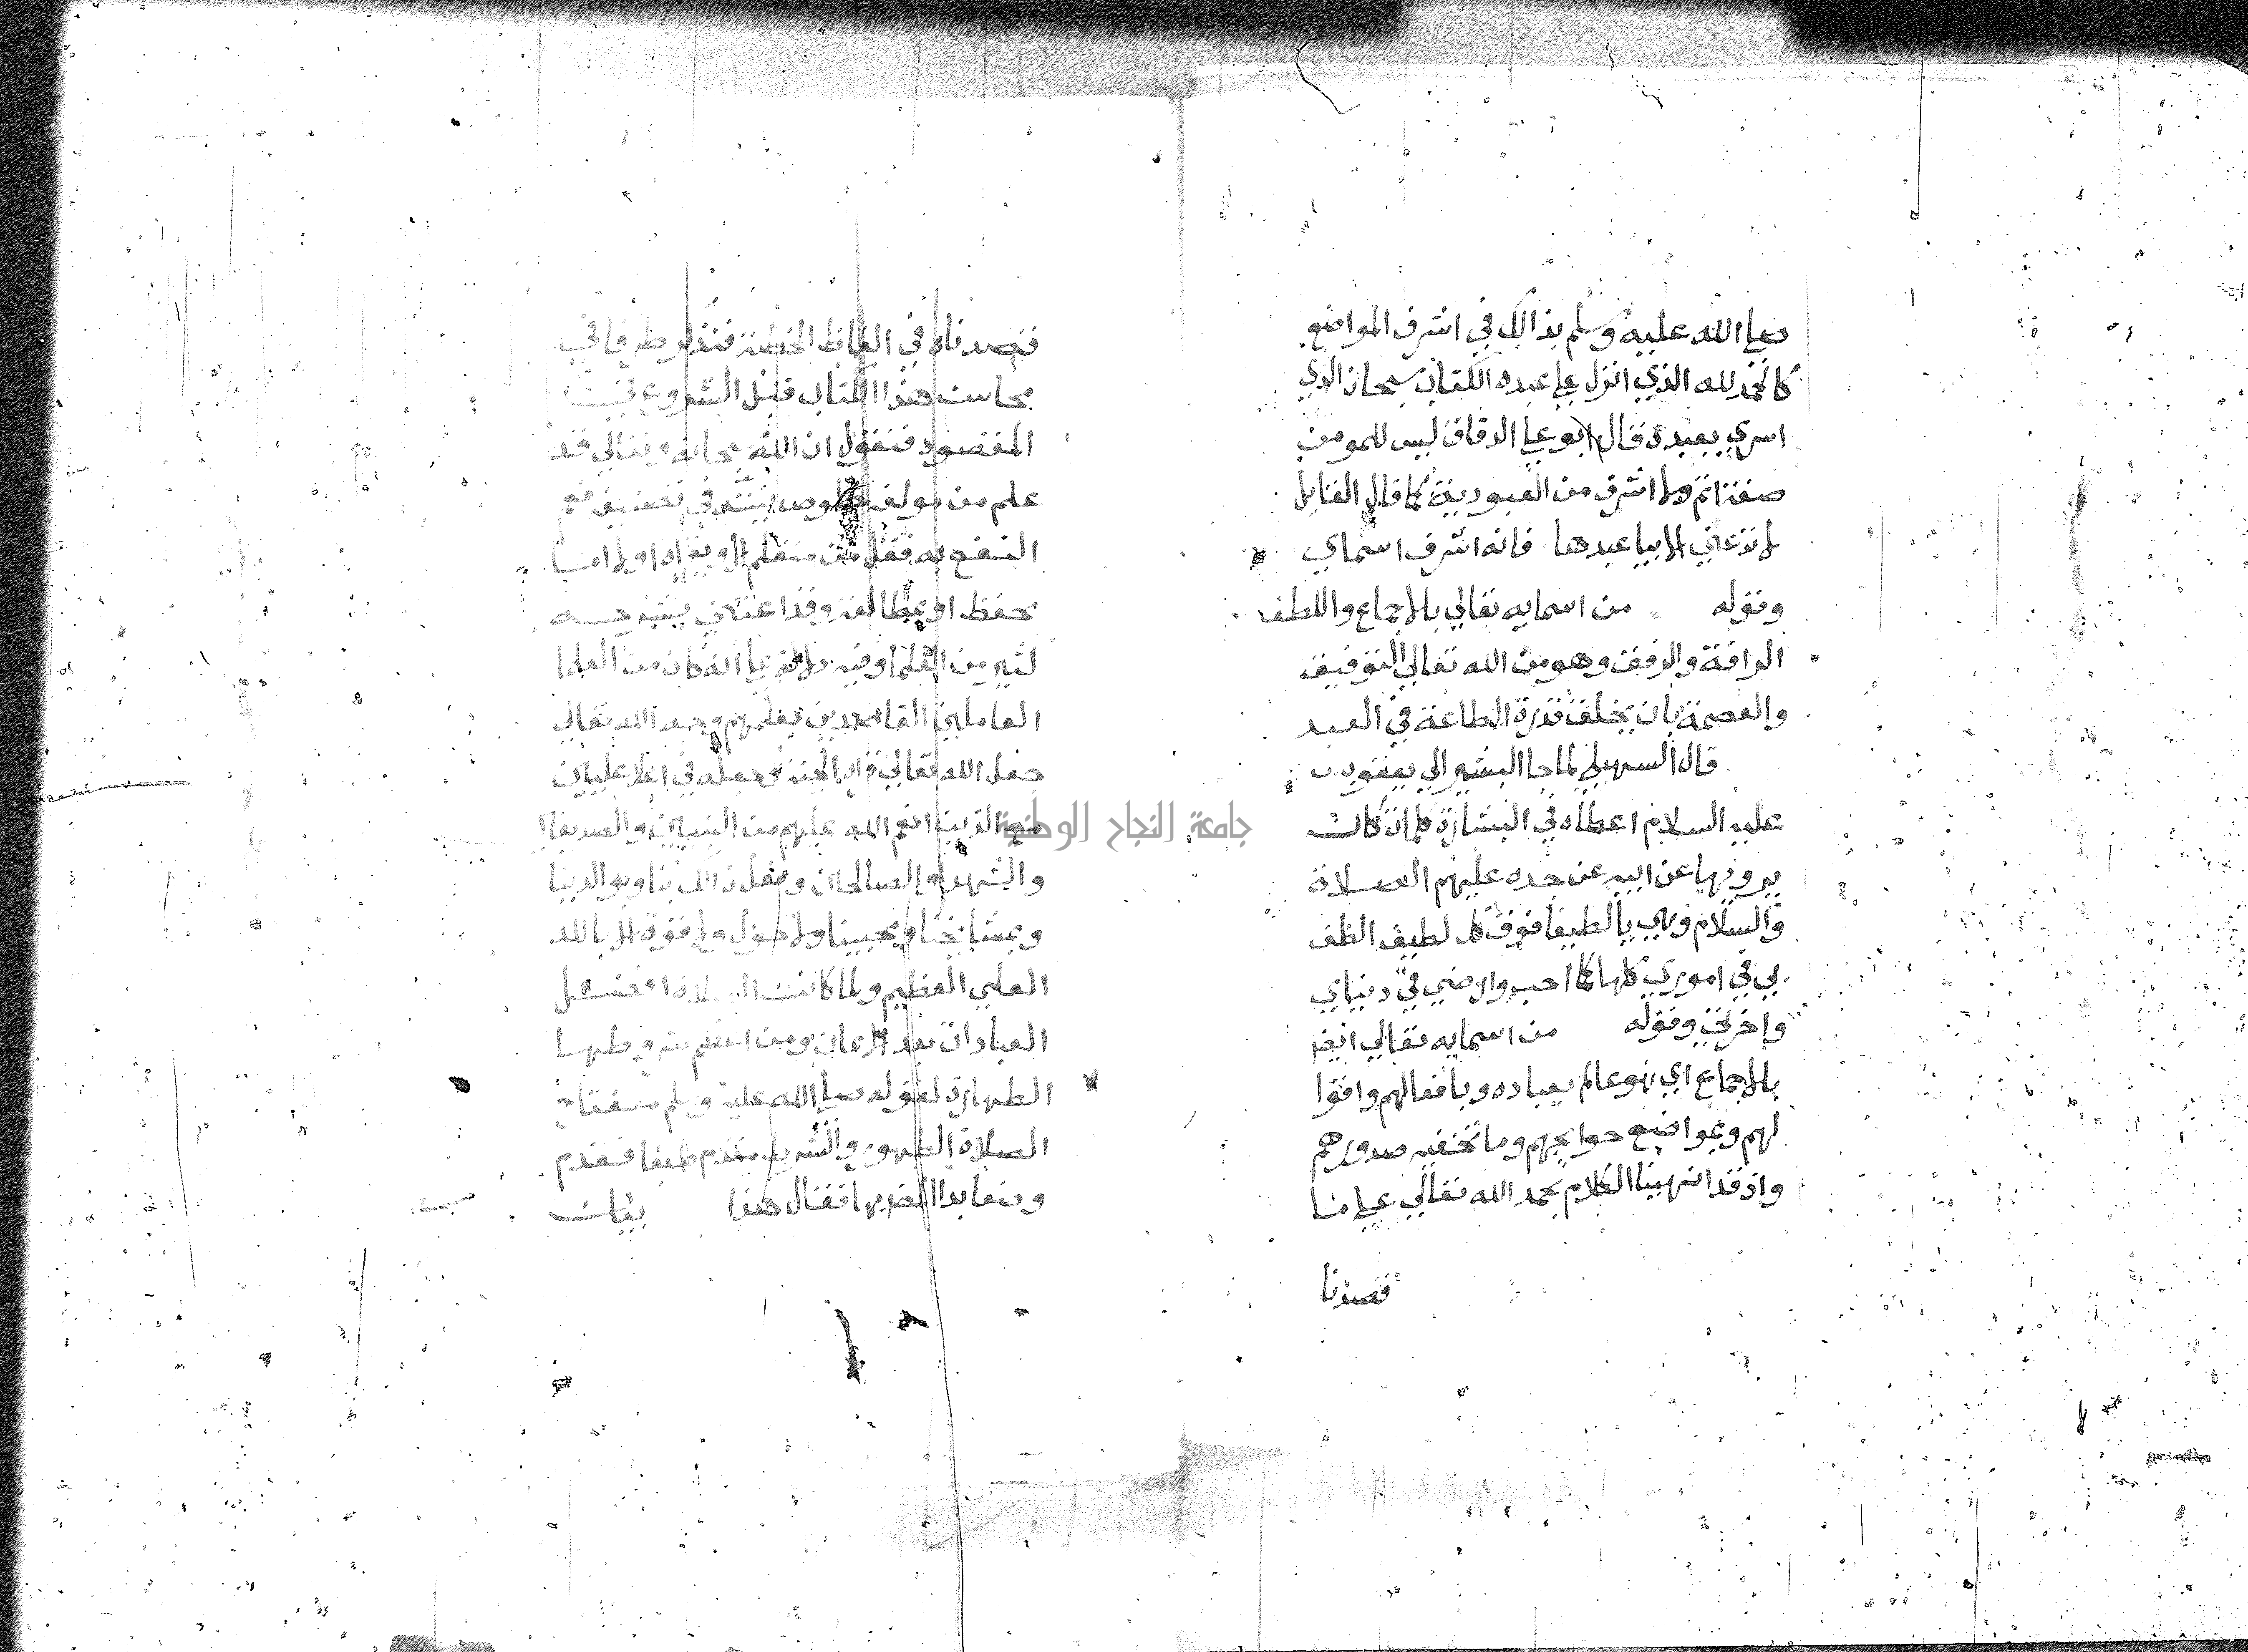 صلي الله عليه وسلم بذالك في اشرف المواضع
كالحمد لله الذي انزل علي عبده الكتاب سبحان الذي
اسري بعبده قال ابو علي الدقاق ليس للمومن
صفة اتم ولا اشرف من العبودية كما قال القايل
لا تدعني الا بيا عبدها فانه اشرف اسماي
وقوله من اسمايه تعالي بالاجماع واللطف
الرافة والرفق وهو من الله تعالي التوفيق
والعصمة بان يخلق قدرة الطاعة في العبد
قال السهيلي لما جا البشير الي يعقوب
عليه السلام اعطاه في البشارة كلمات كان
يرويها عن ابيه عن جده عليهم الصلاة
والسلام وهي يا لطيفا فوق كل لطيف الطف
بي في اموري كلها كما احب وارضني في دنياي
واخرتي وقوله من اسمايه تعالي ايضا
بالاجماع اي هو عالم بعباده وبافعالهم واقوا
لهم وبمواضع حوايجهم وما تخفيه صدورهم
واذ قد انتهينا الكلام بحمد الله تعالي علي ما
قصدنا
قصدناه في الفاظ الخطبة فنذكر طرفا في
محاسن هذا الكتاب قبل الشروع في
المقصود فنقول ان الله سبحانه وتعالي قد
علم من مولفه خلوص نيته في تصنيفه فعم
النفع به فقل من متعلم الا ويقراه اولا اما
بحفظ او بمطالعة وقد اعتني بشرحه
كثير من العلما وفيه دلالة علي انه كان من العلما
العاملين القاصدين بعلمهم وجه الله تعالي
جعل الله تعالي قراه الجنة وجعله في اعلا عليين
مع الذين انعم الله عليهم من النبيين والصديقين
والشهدا والصالحين وفعل ذالك بنا وبوالدينا
وبمشايخنا ومحبينا ولا حول ولا قوة الا بالله
العلي العظيم ولما كانت الصلاة افضل
العبادات بعد الايمان ومن اعظم شروطها
الطهارة لقوله صلي الله عليه وسلم مفتاح
الصلاة الطهور والشرط مقدم طبعا فقدم
وضعا بدا المصنف بها فقال هذا بيان
جامعة النجاح الوطنية